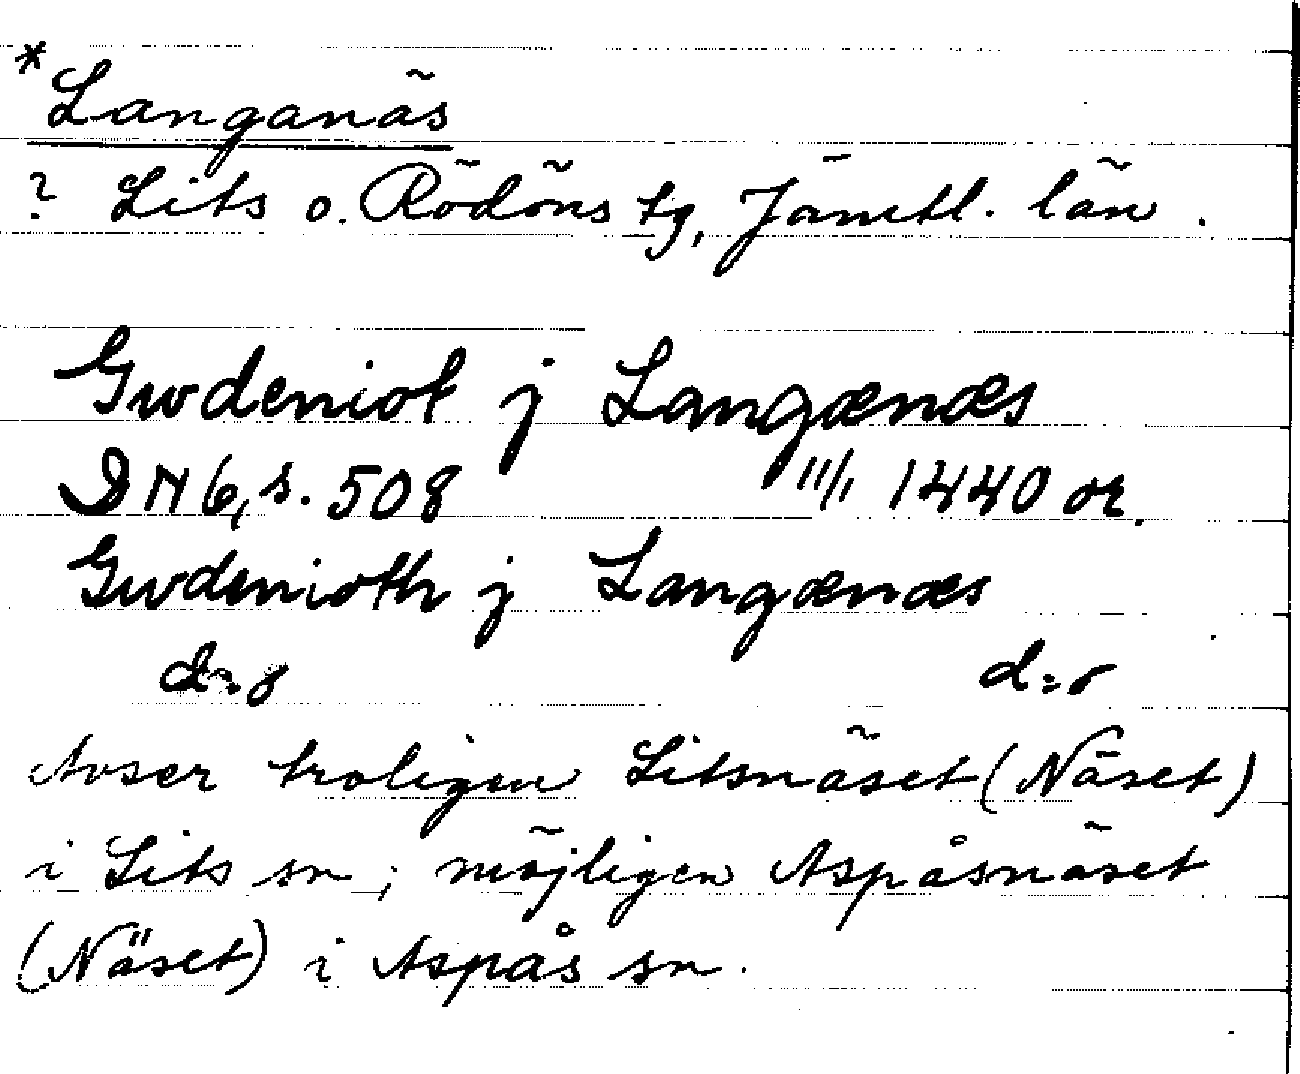 *Langanäs
? Lits o. Rödöns tg, Jämtl. län.
Gwdeniot j Langænæs
DN 6, s. 508 11/1 1440 or.
Gwdenioth j Langænæs
d:o d:o
Avser troligen Litsnäset (Näset)
i Lits sn; möjligen Aspåsnäset
(Näset) i Aspås sn.